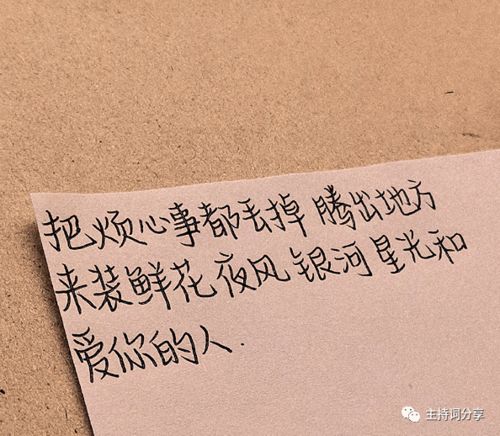 把烦心事都丢掉 腾出地方
来装鲜花 夜风 银河 星光和
爱你的人.
主持词分享